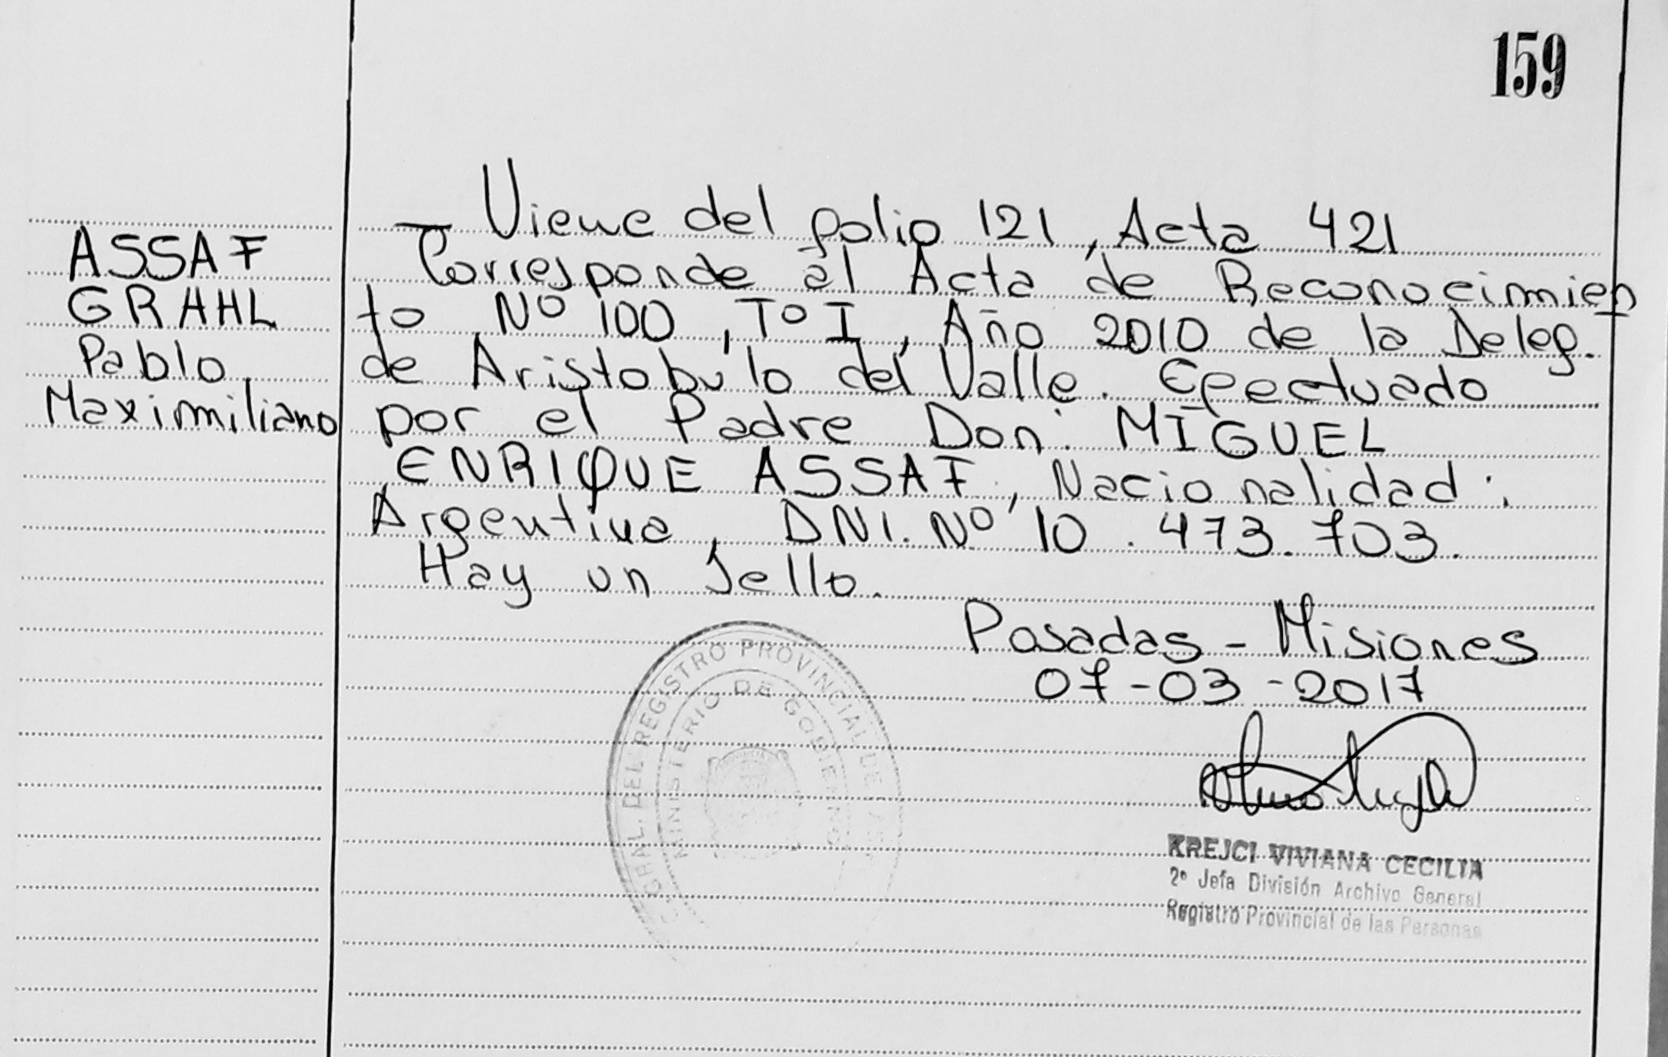 159
ASSAF
GRAHL
Pablo
Maximiliano
— Viene del folio 121, Acta 421
Corresponde al Acta de Reconocimien
to Nº 100, Tº I, Año 2010 de la Deleg.
de Aristobulo del Valle. Efectuado
por el Padre Don: MIGUEL
ENRIQUE ASSAF, Nacionalidad:
Argentina, DNI. Nº 10.473.703.
Hay un Sello.
Posadas - Misiones
07-03-2017
GRAL. DEL REGISTRO PROVINCIAL DE LAS
MINISTERIO DE GOBIERNO
KREJCI VIVIANA CECILIA
2º Jefa División Archivo General
Registro Provincial de las Personas